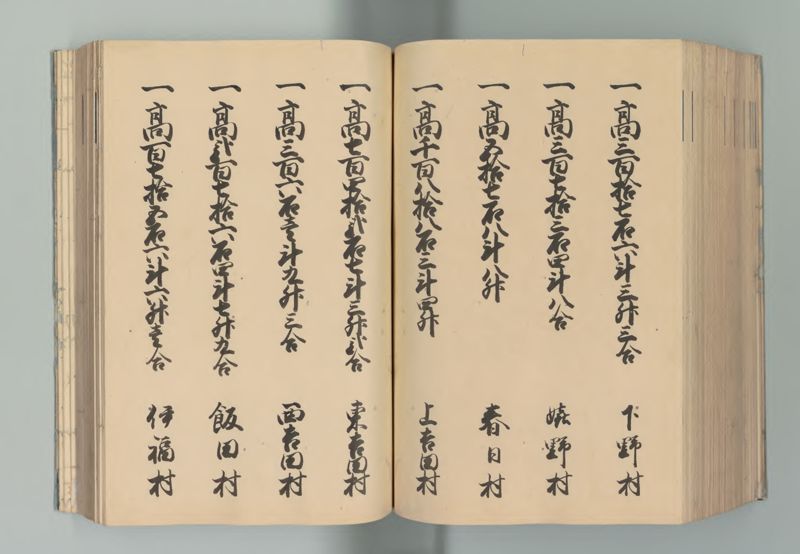 一高三百拾七石六斗三升三合 下野村
一高三百七拾三石四斗八合 嬉野村
一高五拾七石八斗八升 春日村
一高千百八拾八石三斗四升 上吉田村
一高七百四拾弐石七斗三升弐合 東吉田村
一高三百六石壱斗九升三合 西吉田村
一高弐百七拾六石四斗七升九合 飯田村
一高百七拾五石六斗六升壱合 伊福村